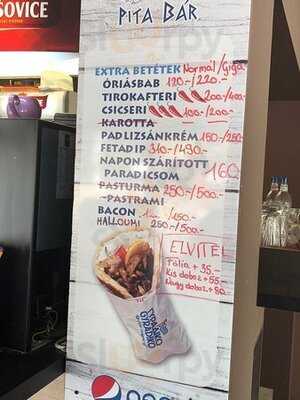 SOVICE
PITA BÁR
EXTRA BETÉTEK Normál/Giga
ÓRIÁSBAB 120-/220.-
TIROKAFTERI 200/400-
CSICSERI 100-/200-
KAROTTA
PADLIZSÁNKRÉM 150-/250-
FETA DIP 310-/430.-
NAPON SZÁRÍTOTT
PARADICSOM 160
PASTURMA 250-/500.-
PASTRAMI
BACON /150-
HALLOUMI 250-/500-
ELVITEL
Fólia + 35.-
Kis doboz + 55.-
Nagy doboz + 80.-
ΓΥΡΑΔΙΚΟ